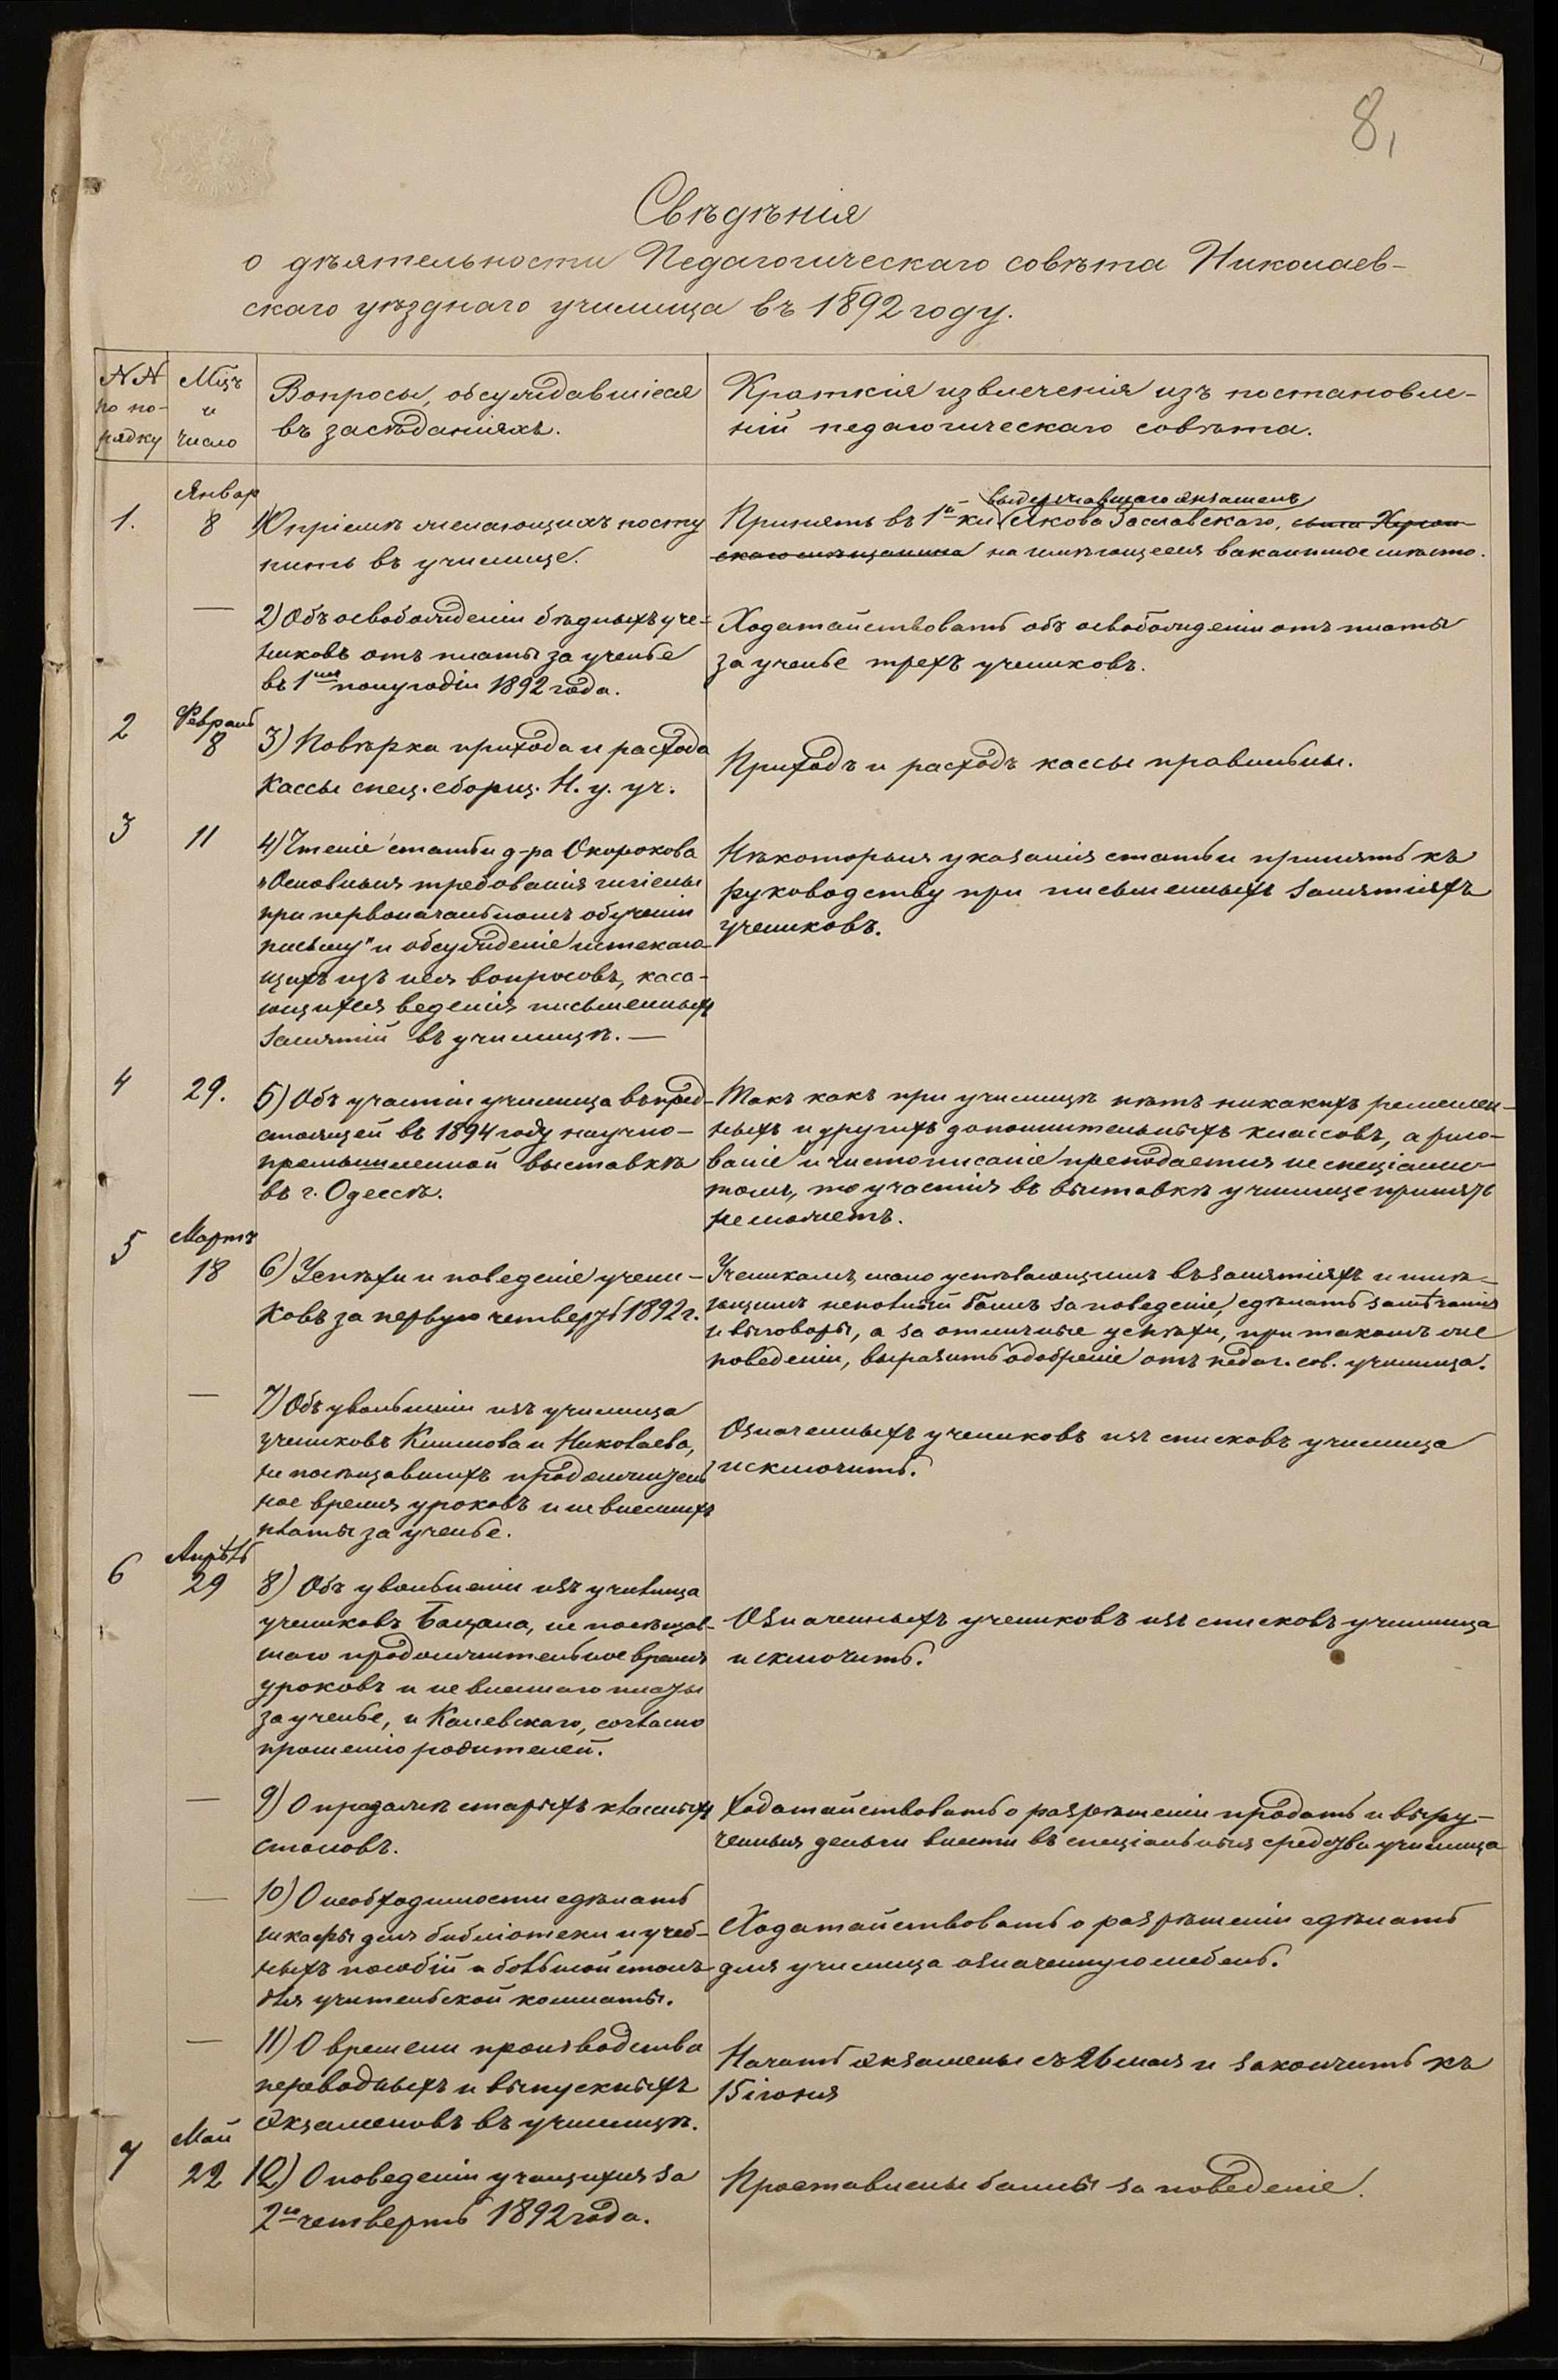 8,
Свѣдѣнія
о дѣятельности Педагогическаго совѣта Николаев-
скаго уѣзднаго училища въ 1892 году.
NN
по по-
рядку
Мцъ
и
число
Вопросы, обсуждавшіеся
въ засѣданіяхъ.
Краткія извлеченія изъ постановле-
ній педагогическаго совѣта.
1.
Январ
8
1) О пріемѣ желающихъ посту
пить въ училище.
выдержавшаго экзаменъ
Принять въ 1й кл. Якова Заславскаго, сына Херсон-
скаго мѣщанина на имѣющееся вакантное мѣсто.
—
2) Объ освобожденіи бѣдныхъ уче-
никовъ отъ платы за ученье
въ 1мъ полугодіи 1892 года.
Ходатайствовать объ освобожденіи отъ платы
за ученье трехъ учениковъ.
2
Февраль
8
3) Повѣрка прихода и расхода
кассы спец. сборщ. Н. у. уч.
Приходъ и расходъ кассы правильны.
3
11
4) Чтеніе статьи д-ра Окорокова
„Основныя требованія гигіены
при первоначальномъ обученіи
письму" и обсужденіе истекаю-
щихъ изъ нея вопросовъ, каса-
ющихся веденія письменныхъ
занятій въ училищѣ. —
Нѣкоторыя указанія статьи принять къ
руководству при письменныхъ занятіяхъ
учениковъ.
4
29.
5) Объ участіи училища въ пред-
стоящей въ 1894 году научно-
промышленной выставкѣ
въ г. Одессѣ.
Такъ какъ при училищѣ нѣтъ никакихъ ремеслен-
ныхъ и другихъ дополнительныхъ классовъ, а рисо-
ваніе и чистописаніе преподается не спеціалис-
томъ, то участія въ выставкѣ училище принять
не можетъ.
5
Мартъ
18
6) Успѣхи и поведеніе учени-
ковъ за первую четверть 1892 г.
Ученикамъ, мало успѣвающимъ въ занятіяхъ и имѣ-
ющимъ неполный баллъ за поведеніе, сдѣлать замѣчанія
и выговоры, а за отличные успѣхи, при такомъ же
поведеніи, выразить одобреніе отъ педаг. сов. училища.
—
7) Объ увольненіи изъ училища
учениковъ Климова и Николаева,
не посѣщавшихъ продолжитель
ное время уроковъ и не внесшихъ
платы за ученье.
Означенныхъ учениковъ изъ списковъ училища
исключить.
6
Апрѣль
29
8) Объ увольненіи изъ училища
учениковъ Бацана, не посѣщав-
шаго продолжительное время
уроковъ и не внесшаго платы
за ученье, и Каневскаго, согласно
прошенію родителей.
Означенныхъ учениковъ изъ списковъ училища
исключить.
—
9) О продажѣ старыхъ классныхъ
столовъ.
Ходатайствовать о разрѣшеніи продать и выру-
ченныя деньги внести въ спеціальныя средства училища
—
10) О необходимости сдѣлать
шкафы для библіотеки и учеб-
ныхъ пособій и большой столъ
для учительской комнаты.
Ходатайствовать о разрѣшеніи сдѣлать
для училища означенную мебель.
—
11) О времени производства
переводныхъ и выпускныхъ
экзаменовъ въ училищѣ.
Начать экзамены съ 26 мая и закончить къ
15 іюня
7
Май
22
12) О поведеніи учащихся за
2ю четверть 1892 года.
Проставлены баллы за поведеніе.